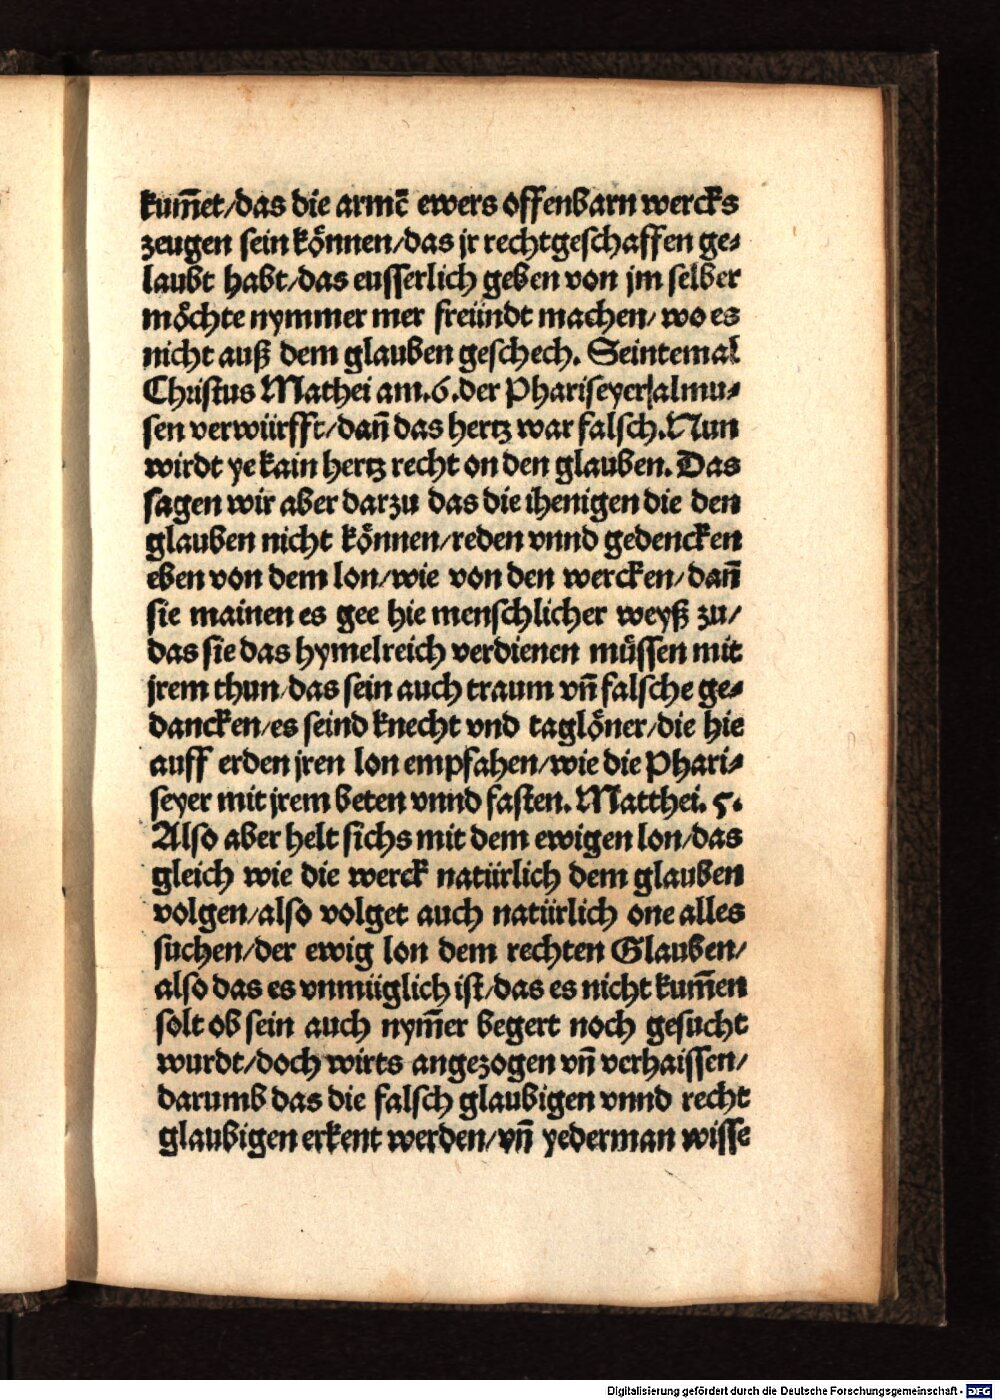 kum̃et/das die armẽ ewers offenbarn wercks
zeugen sein können/das jr rechtgeschaffen ge⸗
laubt habt/das eusserlich geben von jm selber
möchte nymmer mer freündt machen/ wo es
nicht auß dem glauben geschech. Seintemal
Christus Mathei am.6.der Phariseyer almu⸗
sen verwürfft/dañ das hertz war falsch.Nun
wirdt ye kain hertz recht on den glauben. Das
sagen wir aber darzu das die ihenigen die den
glauben nicht können/reden vnnd gedencken
eben von dem lon/wie von den wercken/dañ
sie mainen es gee hie menschlicher weyß zu/
das sie das hymelreich verdienen müssen mit
jrem thun/das sein auch traum vñ falsche ge⸗
dancken/es seind knecht vnd taglöner/die hie
auff erden jren lon empfahen/wie die Phari⸗
seyer mit jrem beten vnnd fasten. Matthei. 5.
Also aber helt sichs mit dem ewigen lon/das
gleich wie die werck natürlich dem glauben
volgen/also volget auch natürlich one alles
suchen/der ewig lon dem rechten Glauben/
also das es vnmüglich ist/das es nicht kum̃en
solt ob sein auch nym̃er begert noch gesucht
wurdt/doch wirts angezogen vñ verhaissen/
darumb das die falsch glaubigen vnnd recht
glaubigen erkent werden/vñ yederman wisse
Digitalisierung gefördert durch die Deutsche Forschungsgemeinschaft - DFG